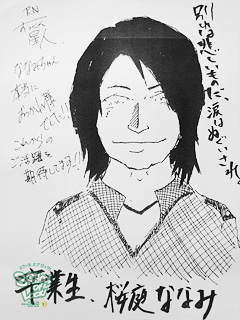 別れは悲しいものだ、涙はぬぐいされ
RN
ななみちゃん
本当に
おつかれ様
でした!!
これからの
ご活躍を
期待してます!!
卒業生、桜庭ななみ